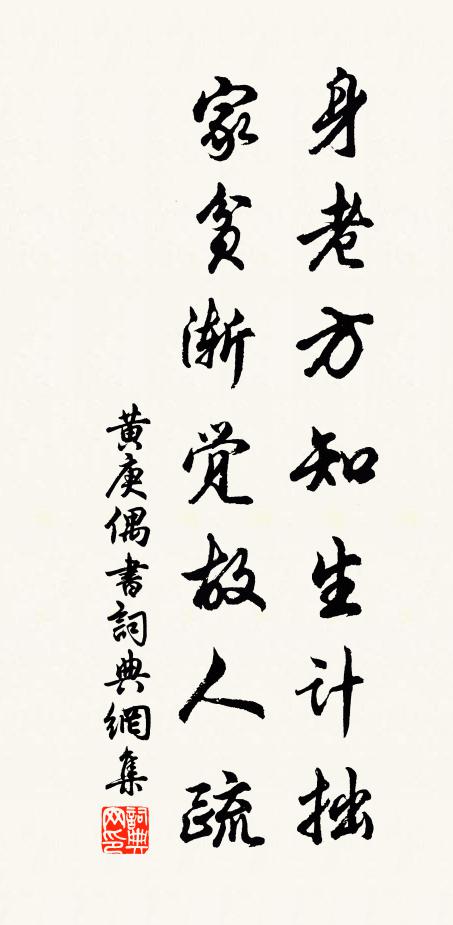 身老方知生计拙
家贫渐觉故人疏
黄庚偶書詞典網集
詞典网印